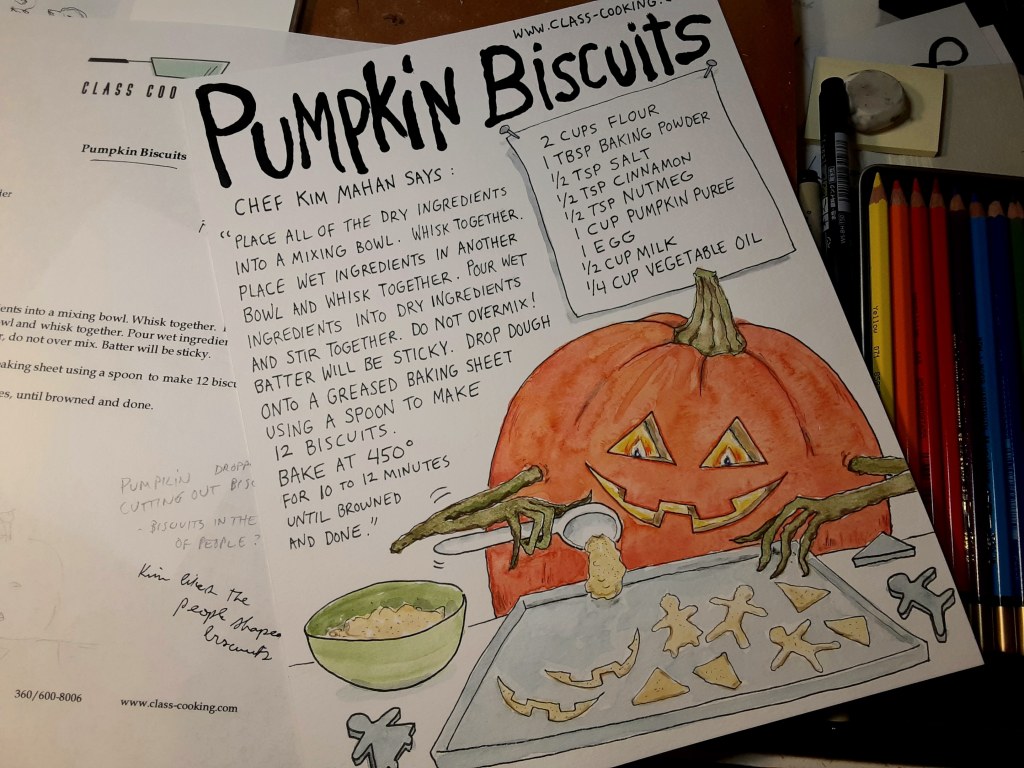 www.class-cooking.
Pumpkin Biscuits
2 CUPS FLOUR
1 TBSP BAKING POWDER
1/2 TSP SALT
1/2 TSP CINNAMON
1/2 TSP NUTMEG
1 CUP PUMPKIN PUREE
1 EGG
1/2 CUP MILK
1/4 CUP VEGETABLE OIL
CHEF KIM MAHAN SAYS:
"PLACE ALL OF THE DRY INGREDIENTS
INTO A MIXING BOWL. WHISK TOGETHER.
PLACE WET INGREDIENTS IN ANOTHER
BOWL AND WHISK TOGETHER. POUR WET
INGREDIENTS INTO DRY INGREDIENTS
AND STIR TOGETHER. DO NOT OVERMIX!
BATTER WILL BE STICKY. DROP DOUGH
ONTO A GREASED BAKING SHEET
USING A SPOON TO MAKE
12 BISCUITS.
BAKE AT 450°
FOR 10 TO 12 MINUTES
UNTIL BROWNED
AND DONE."
CLASS COO
Pumpkin Biscuits
der
ents into a mixing bowl. Whisk together.
owl and whisk together. Pour wet ingredien
r, do not over mix. Batter will be sticky.
aking sheet using a spoon to make 12 biscu
es, until browned and done.
PUMPKIN DROPP
CUTTING OUT BISC
- BISCUITS IN THE
OF PEOPLE?
Kim likes the
people shapes
biscuits
360/600-8006 www.class-cooking.com
Yellow